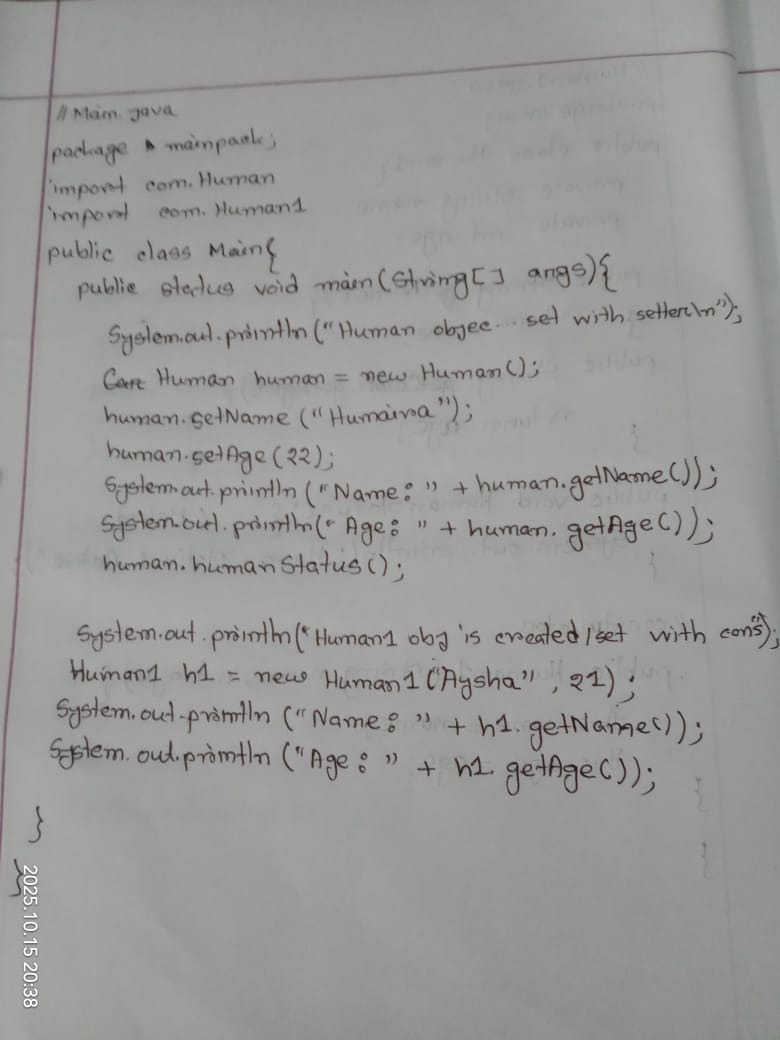 // Main.java
package mainpack;
import com.Human
import com.Human1
public class Main{
public status void main(String[] args){
System.out.println("Human objec... set with setter\n");
Human human = new Human();
human.setName("Humaira");
human.setAge(22);
System.out.println("Name: " + human.getName());
System.out.println("Age: " + human.getAge());
human.humanStatus();
System.out.println("Human1 obj is created/set with cons");
Human1 h1 = new Human1("Aysha", 21);
System.out.println("Name: " + h1.getName());
System.out.println("Age: " + h1.getAge());
}
}
2025.10.15 20:38